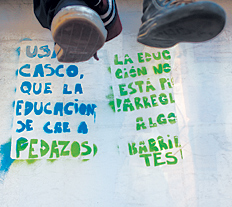 USA
CASCO,
QUE LA
EDUCACION
SE CAE A
PEDAZOS
LA EDUC
CIÓN NO
ESTÁ P
¡ARREGL
ALGO
BARRIL
TES